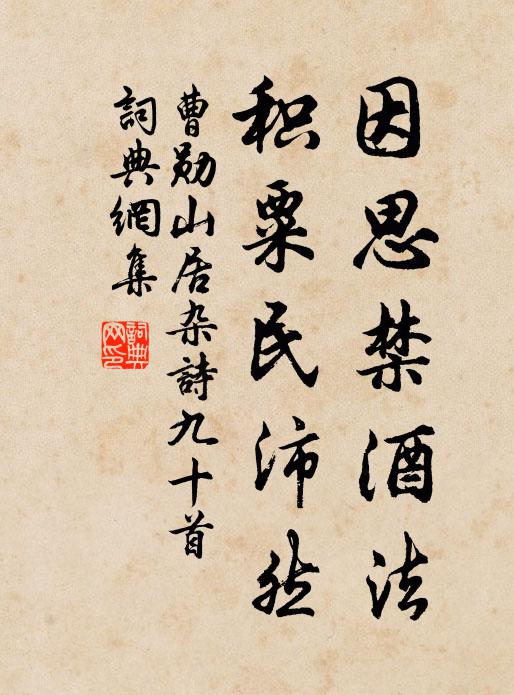 因思禁酒法
积粟民沛然
曹勋山居杂詩九十首
詞典網集
詞典
网印